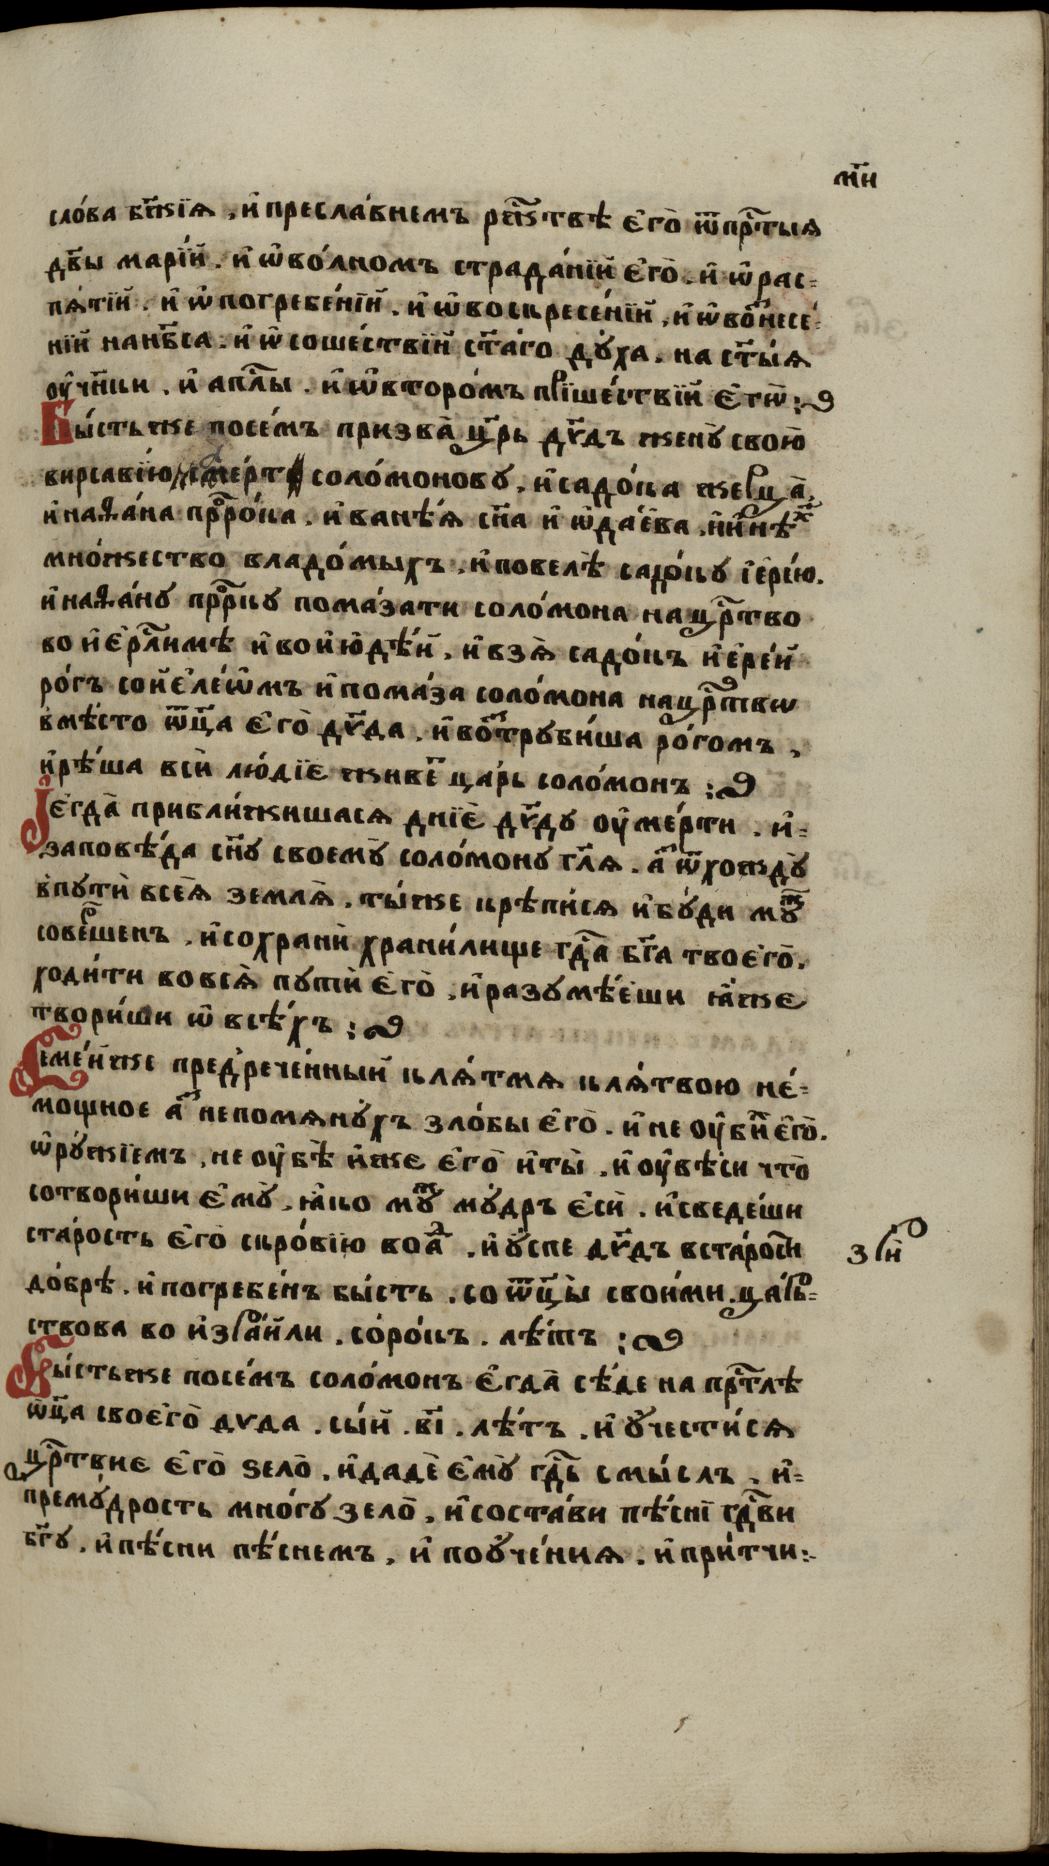 м҃и
сло́ва бж҃їѧ , и҆ пресла́внемъ ржⷭ҇твѣ є҆го̀ ѿ прⷭ҇тыѧ
дв҃ы марі́й . и҆ ѡ҆ во́лномъ страда́нїй є҆го̀ . и҆ ѡ҆ рас=
пѧ́тїй . и҆ ѡ҆ погребе́нїй . и҆ ѡ҆ воскресе́нїй , и҆ ѡ҆ воⷥ҇несе́=
нїй на нб҃са . и҆ ѡ҆ соше́ствїй ст҃а́го дꙋ́ха . на ст҃ы́ѧ
оу҆чн҃ки . и҆ апⷭ҇лы . и҆ ѡ҆ второ́мъ прїше́ствїй є҆гѡ̀ :
Бы́сть же посе́мъ призва̀ цр҃ь дв҃дъ женꙋ̀ свою̀
вирсавїю соло́моновꙋ , и҆ садо́ка жерца̀ ,
и҆ наѳа́на прⷪ҇ро́ка . и҆ ване́ѧ сн҃а и҆ ѡ҆да́е҆ва , и҆ и҆нѣⷯ
мно́жество владо́мыхъ , и҆ повелѣ̀ садо́кꙋ і҆ере́ю .
и҆ наѳа́нꙋ прⷪ҇ркꙋ пома́зати соло́мона на црⷭ҇тво
во и҆є҆рⷭ҇лимѣ и҆ во и҆ю҆дѣ́й , и҆ взѧ̀ садо́къ и҆ере́й
ро́гъ со и҆є҆ле́ѡ҆мъ и҆ пома́за соло́мона на црⷭ҇твѡ
вмѣ́сто ѿц҃а є҆го̀ дв҃да , и҆ воⷥ҇трꙋби́ша ро́гомъ ,
и҆ рѣ́ша всѝ лю́дїє живе́ ца́рь соло́монъ :
Є҆гда̀ прибли́жишасѧ дн҃їѐ дв҃дꙋ оу҆ме́рти . и҆=
заповѣ́да сн҃ꙋ своемꙋ̀ соло́монꙋ гл҃ѧ . аⷥ҇ ѿхождꙋ̀
впꙋ́ти всеѧ̀ землѧ̀ . ты́ же крѣпи́сѧ и҆ бꙋ́ди мꙋⷤ
соверⷲ҇енъ , и҆ сохранѝ храни́лище гдⷭ҇а бг҃а твоєго̀ .
ходи́ти во всѧ̀ пꙋтѝ є҆го̀ , и҆ разꙋмѣ́е҆ши ꙗ҆́же
твори́ши ѡ҆ всѣ́хъ :
Семе́й же предрече́нный клѧ́тмѧ клѧ́твою не́=
мощное аⷥ҇ не помѧнꙋ́хъ зло́бы є҆го̀ . и҆ не оу҆би́ є҆го̀ .
ѡ҆рꙋ́жїемъ , не оу҆бѣ̀ и҆́же є҆го̀ и҆ ты̀ , и҆ оу҆вѣ́си что̀
сотвори́ши є҆мꙋ̀ , ꙗ҆́ко мꙋⷤ мꙋ́дръ є҆сѝ . и҆ сведе́ши
ста́рость є҆го̀ скро́вїю во аⷣ҇ , и҆ ꙋ҆́спе дв҃дъ вста́рости
до́брѣ . и҆ погребе́нъ бы́сть . со ѿц҃ы̀ свои́ми . ца́рь=
ствова во и҆зра́и҆ли . со́рокъ . лѣ́тъ :
Бы́сть же посе́мъ соло́монъ є҆гда̀ сѣ́де на прⷭ҇тлѣ
ѿц҃а своєго̀ дѵда . сы́й . в҃і . лѣ́тъ . и҆ ꙋ҆чести́сѧ
црⷭ҇твиє є҆го̀ ѕело̀ . и҆ дадѐ є҆мꙋ̀ гдⷭ҇ь смы́слъ , и҆=
премꙋ́дрость мно́гꙋ зело̀ , и҆ соста́ви пѣ́снї гдⷭ҇ви
бг҃ꙋ . и҆ пѣ́сни пѣ́снемъ , и҆ поꙋче́ниѧ . и҆ при́тчи :